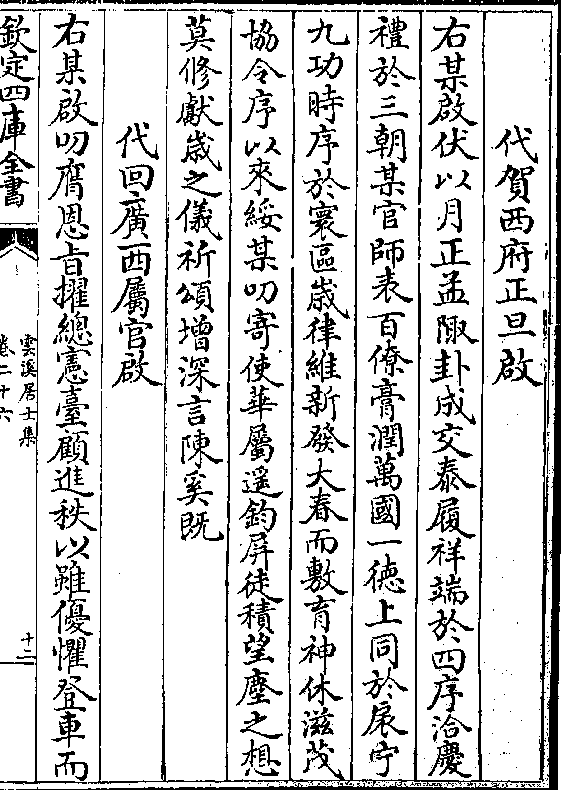 代賀西府正旦啟
右某啟伏以月正孟陬卦成交泰履祥端於四序洽慶
禮於三朝某官師表百僚膏潤萬國一德上同於扆宁
九功時序於寰區歲律維新發大春而敷育神休滋茂
協令序以來綏某叨寄使華屬遥鈞屏徒積望塵之想
莫修獻歲之儀祈頌增深言陳奚既
代回廣西屬官啟
右某啟叨膺恩旨擢總憲臺顧進秩以雖優懼登車而
欽定四庫全書
雲溪居士集
卷二十六
十二